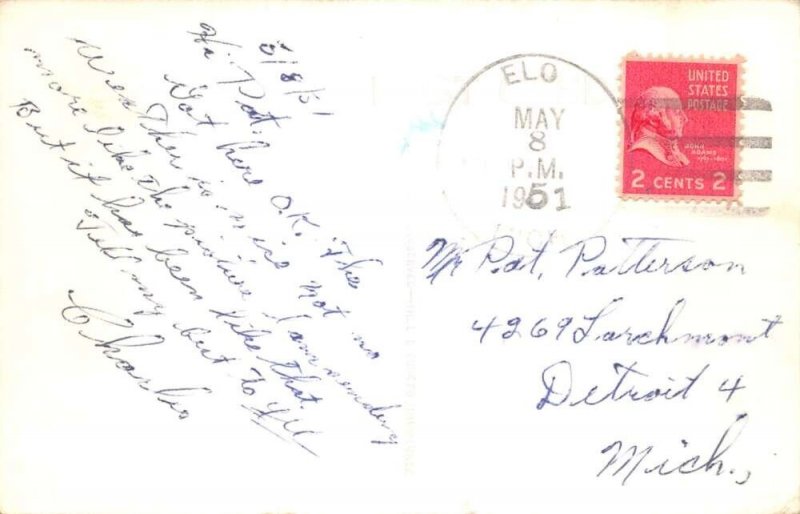 5/8/51
Hi Pat.
Got here O.K. The
Weather is nice Not no
more like the picture I am sending
But it has been like that.
Tell my best to All
Charles
ELO
MAY
8
P.M.
1951
UNITED
STATES
POSTAGE
JOHN
ADAMS
2 CENTS 2
Mr Pat. Patterson
4269 Larchmont
Detroit 4
Mich.,